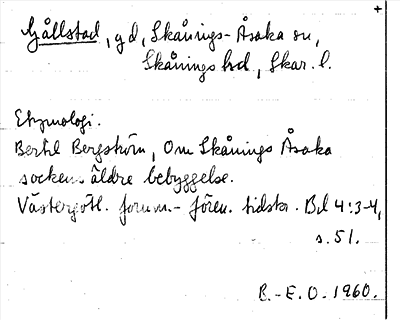 +
Gållstad, gd, Skånings-Åsaka sn,
Skånings hd, Skar. l.
Etymologi.
Bertil Bergström, Om Skånings Åsaka
sockens äldre bebyggelse.
Västergötl. fornm.- fören. tidskr. Bd 4:3-4,
s. 51.
B.-E. O. 1960.